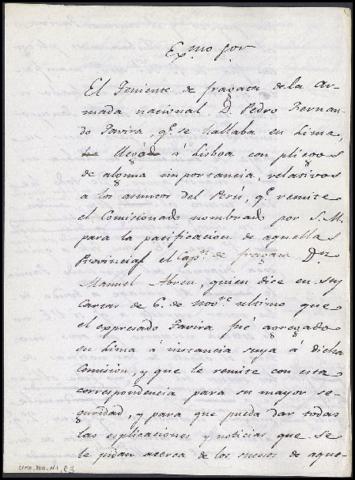 Exmo Sor
El Teniente de fragata de la Ar-
mada nacional D. Pedro Fernan-
do Tavira, qe. se hallaba en Lima,
llegó á Lisboa con pliegos
de alguna importancia, relativos
a los asuntos del Perú, qe. remite
el Comisionado nombrado por S.M.
para la pacificacion de aquellas
Provincias el Capn. de fragata Dn.
Manuel Abreu, quien dice en sus
cartas de 6 de Novre. ultimo que
el expresado Tavira fué agregado
en Lima á instancia suya á dicha
Comisión, y que le remite con esta
correspondencia para su mayor se-
guridad, y para que pueda dar todas
las explicaciones y noticias que se
le pidan acerca de los sucesos de aque-